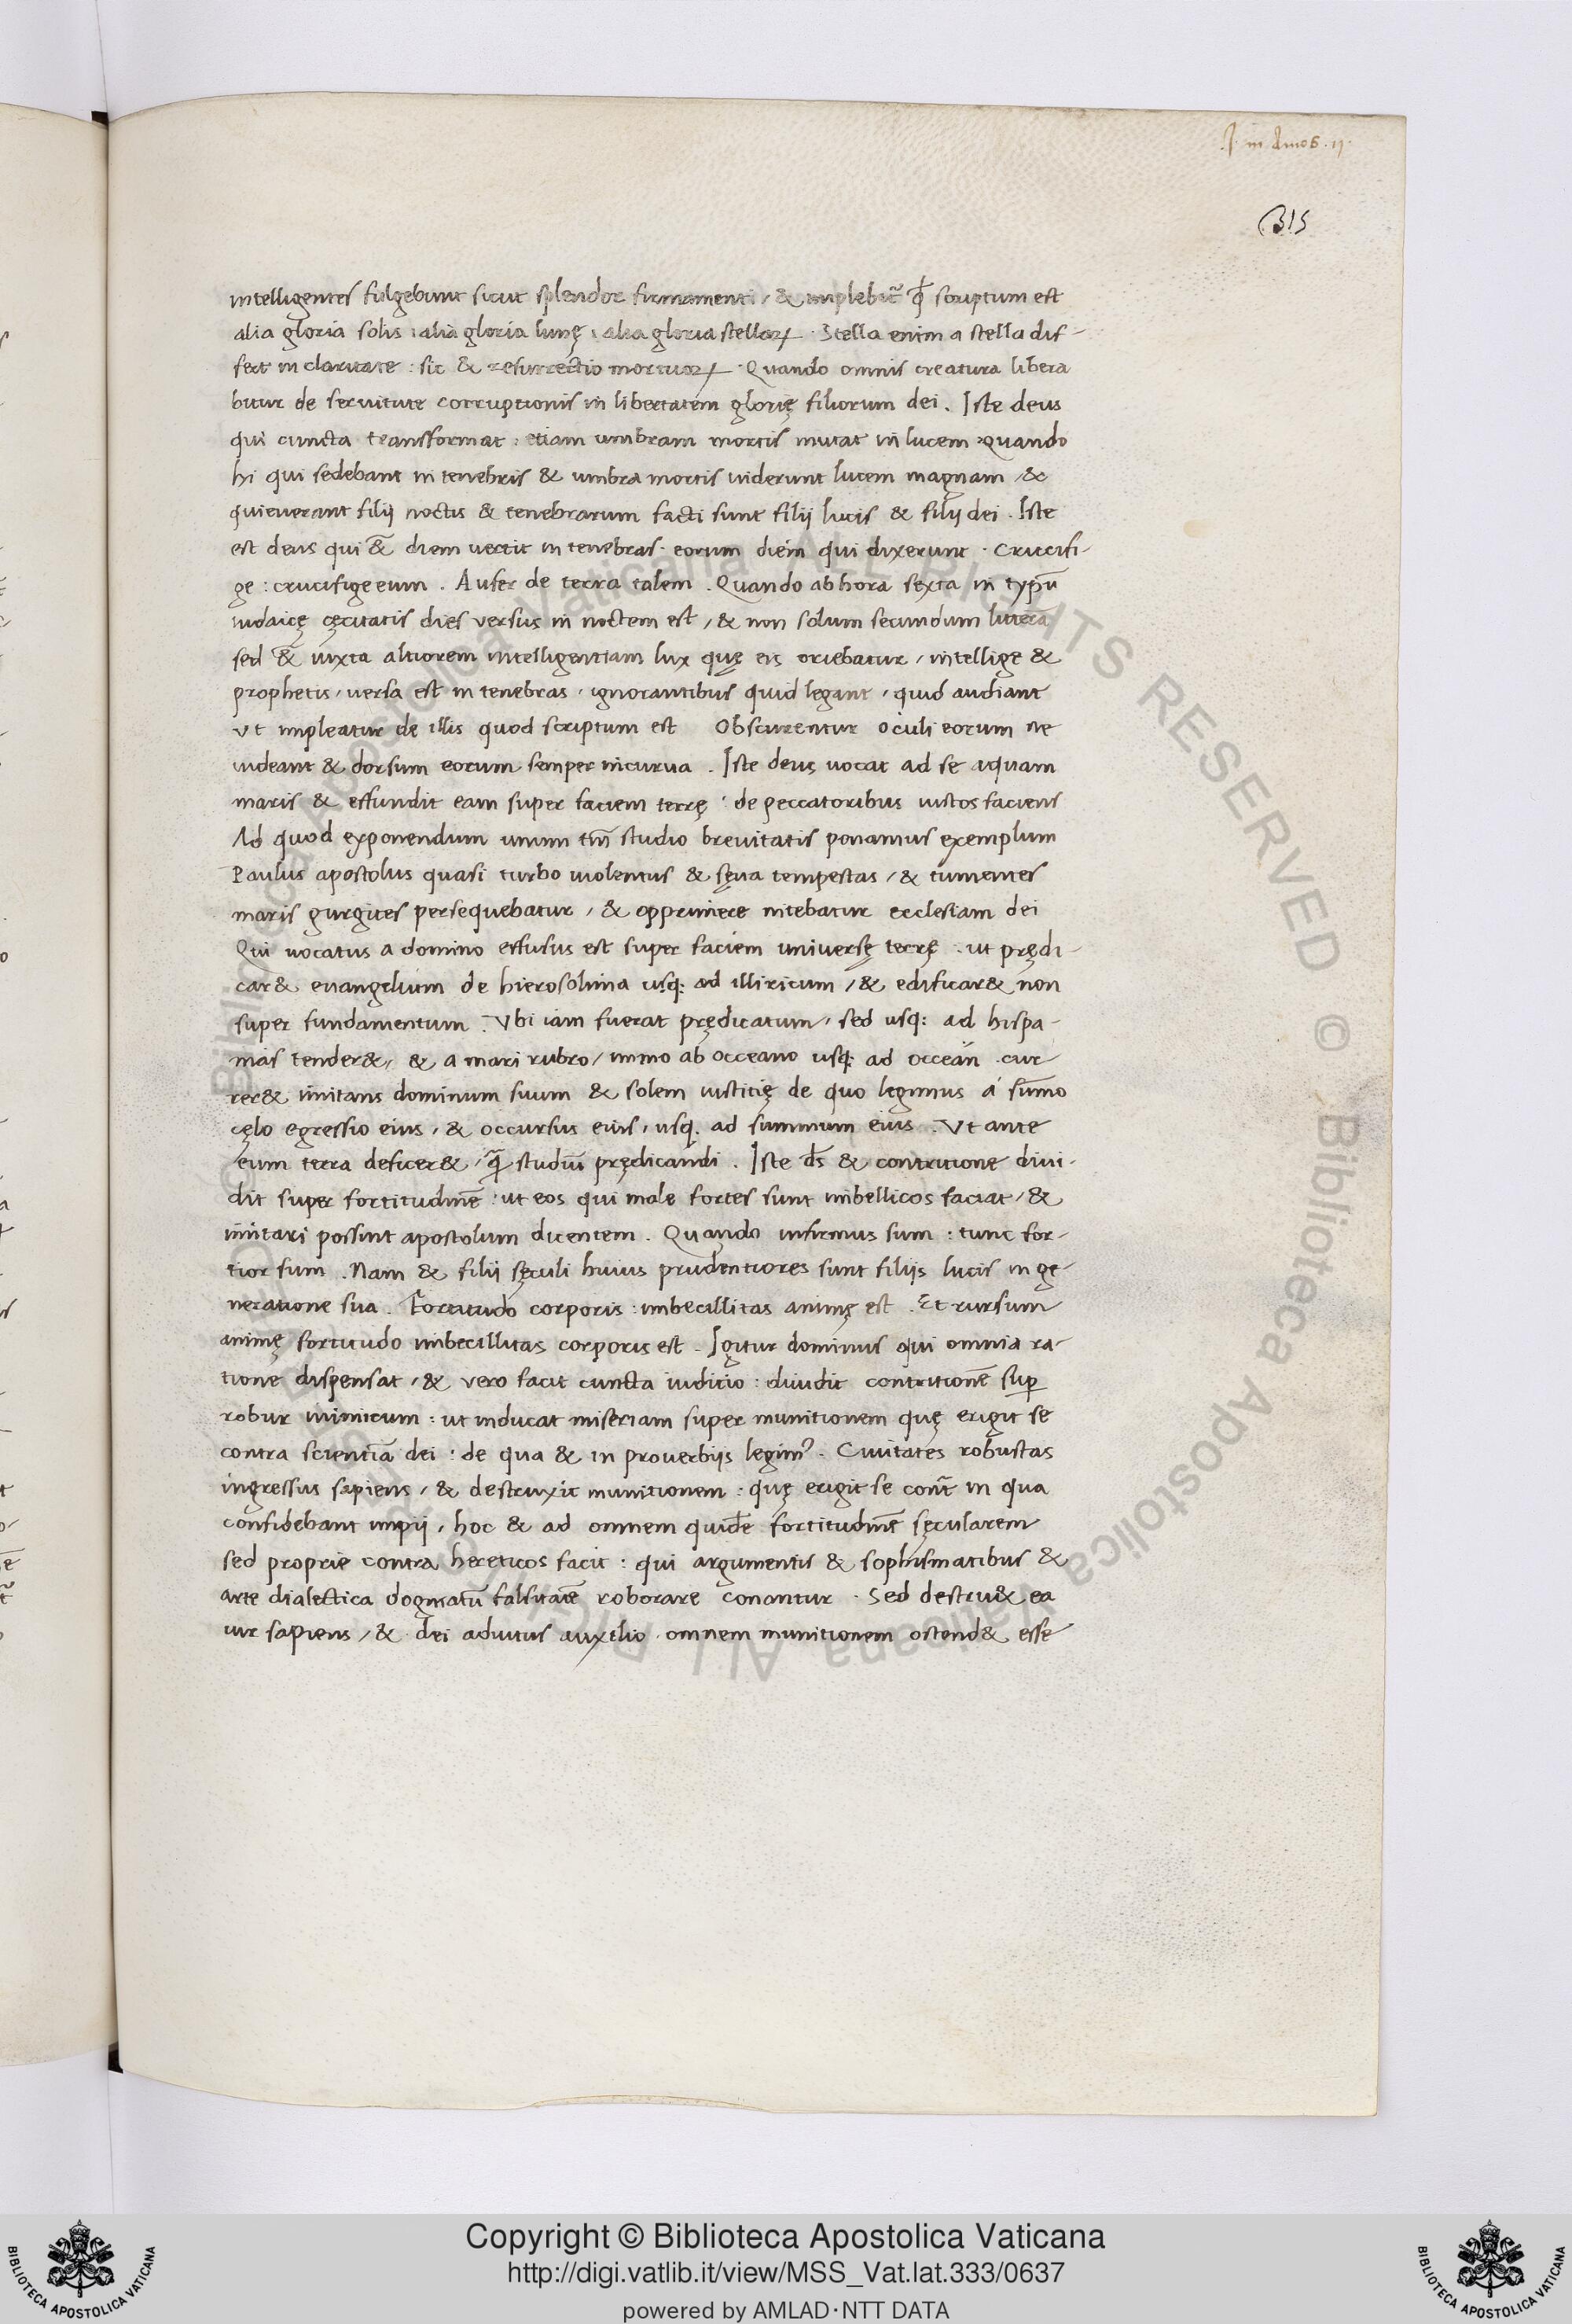 .J. in Amos. ij.
315
intelligentes fulgebunt sicut splendor firmamenti / & implebit᷑ qđ scriptum est
alia gloria solis : alia gloria lunę : alia gloria stellaꝝ . Stella enim a stella dif-
fert in claritate : sic & resurrectio mortuoꝝ . Quando omnis creatura libera
bitur de seruitute corruptionis in libertatem glorię filiorum dei . Iste deus
qui cuncta transformat : etiam umbram mortis mutat in lucem . Quando
hi qui sedebant in tenebris & umbra mortis uiderunt lucem magnam / &
qui erant filij noctis & tenebrarum facti sunt filij lucis & filij dei . Iste
est deus qui &̄ diem uertit in tenebras . eorum diem qui dixerunt . Crucifi-
ge : crucifige eum . Aufer de terra talem . Quando ab hora sexta in typū
iudaicę cęcitatis dies versus in noctem est , & non solum secundum litterā
sed &̄ iuxta altiorem intelligentiam lux quę eis oriebatur / in lege &
prophetis / versa est in tenebras , ignorantibus quid legant , quid audiant
Vt impleatur de illis quod scriptum est Obscurentur oculi eorum ne
uideant & dorsum eorum semper incurua . Iste deus uocat ad se aquam
maris & effundit eam super faciem terrę : de peccatoribus iustos faciens
Ad quod exponendum unum tm̄ studio breuitatis ponamus exemplum
Paulus apostolus quasi turbo uiolentus & sęua tempestas , & tumentes
maris gurgites persequebatur , & opprimere nitebatur ecclesiam dei
Qui uocatus a domino effusus est super faciem universę terrę . ut prędi-
car& euangelium de hierosolima usq: ad illiricum , & edificar& non
super fundamentum . Vbi iam fuerat prędicatum , sed usq: ad hispa-
nias tender& , & a mari rubro / immo ab occeano usq: ad occean̄ . cur
rer& imitans dominum suum & solem iustitię de quo legimus a sum̄o
cęlo egressio eius , & occursus eius , usq. ad summum eius . Vt ante
eum terra deficer& , q̄ studiū prędicandi . Iste ds̄ & contritione diui-
dit super fortitudinē : ut eos qui male fortes sunt imbellicos faciat , &
imitari possint apostolum dicentem . Quando infirmus sum : tunc for-
tior sum . Nam & filii sęculi huius prudentiores sunt filijs lucis in ge-
neratione sua . Fortitudo corporis : imbecillitas animę est . Et rursum
animę fortitudo imbecillitas corporis est . Igitur dominus qui omnia ra-
tione dispensat , & vero facit cuncta iuditio : diuidit contritionē suꝑ
robur inimicum : ut inducat miseriam super munitionem quę erigit se
contra scientiā dei : de qua & in proverbijs legimꝰ . Ciuitates robustas
ingressus sapiens , & destruxit munitionem : quę erigit se cont̄ in qua
confidebant impij , hoc & ad omnem quidē fortitudinē sęcularem
sed proprie contra hereticos facit : qui argumentis & sophismatibus &
arte dialectica dogmatū falsitatē roborare conantur . Sed destru& ea
uir sapiens , & dei adiutus auxilio . omnem munitionem ostend& esse
Copyright © Biblioteca Apostolica Vaticana
http://digi.vatlib.it/view/MSS_Vat.lat.333/0637
powered by AMLAD·NTT DATA